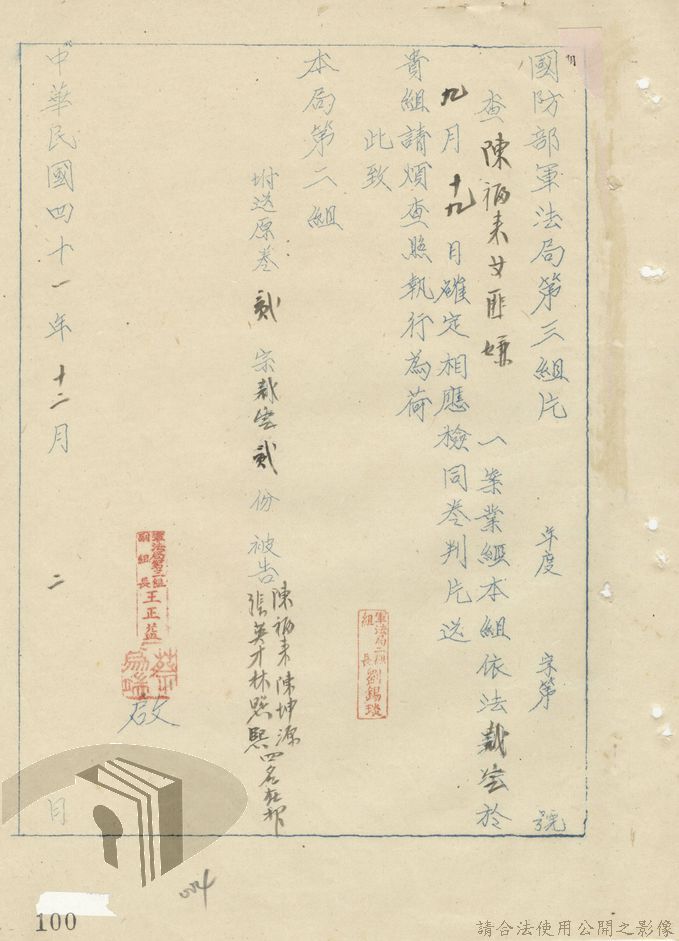 國防部軍法局第三組片 年度 字第 號
查陳福來女匪嫌一案業經本組依法裁定於
九月十九日確定相應檢同卷判片送
貴組請煩查照執行為荷
此致
本局第二組
軍法局二組
組長劉錫琰
附送原卷貳宗裁定貳份被告陳福來陳坤源
張英才林照熙四名在押
軍法局第三組
副組長王正益
啟
中華民國四十一年十二月二日
100
請合法使用公開之影像